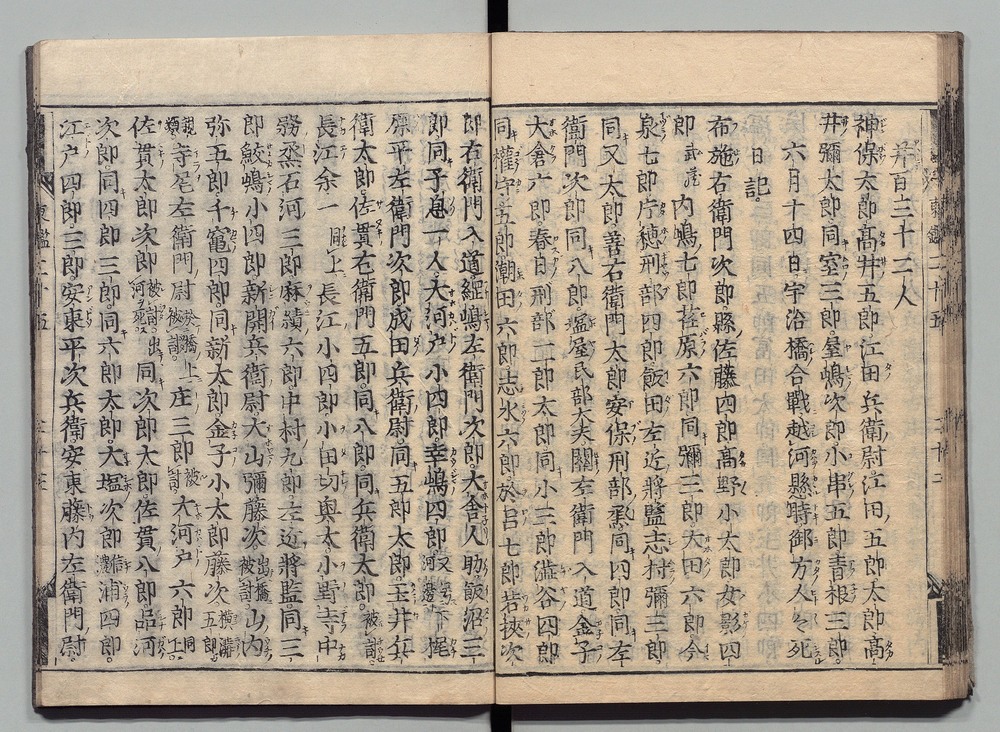 并百三十二人
神保太郎。高井五郎。江田兵衛尉。江田五郎太郎。高
井彌太郎。同室三郎。屋嶋次郎。小串五郎。青根三郎。
六月十四日宇治橋合戰越河懸時御方人々死
日記。
布施右衛門次郎。縣佐藤四郎。髙野小太郎。女影四
郎武藏内嶋七郎。荏原六郎。同彌三郎。大田六郎。今
泉七郎。庁穂刑部四郎。飯田左近將監。志村彌三郎
同又太郎。善右衛門太郎。安保刑部丞。同四郎。同左
衛門次郎。同八郎。塩屋民部大夫。關左衛門入道。金子
大倉六郎。春日刑部三郎太郎。同小三郎。澁谷四郎
同權守五郎。潮田六郎。志水六郎。於呂七郎。若挾次
郎右衛門入道。經嶋左衛門次郎。大舎人助。飯沼三
郎。同子息一人。大河戸小四郎。幸嶋四郎
原平左衛門次郎。成田兵衛尉。同五郎太郎。玉井兵
衛太郎。佐貫右衛門五郎。同八郎。同兵衛太郎。被討
長江余一同上長江小四郎。小田切奥太。小野寺中
務丞。石河三郎。麻績六郎。中村九郎。左近將監。同三
郎。鮫嶋小四郎。新開兵衛尉。大山彌藤次山内
弥五郎。千竃四郎。同新太郎。金子小太郎。藤次
親類寺尾左衛門尉庄三郎被討大河戸六郎同上。
佐貫太郎次郎同次郎太郎。佐貫八郎。品河
次郎。同四郎三郎。同六郎太郎。大塩次郎浦四郎。
江戸四郎三郎。安東平次兵衛。安東藤内左衛門尉。
東鑑二十五